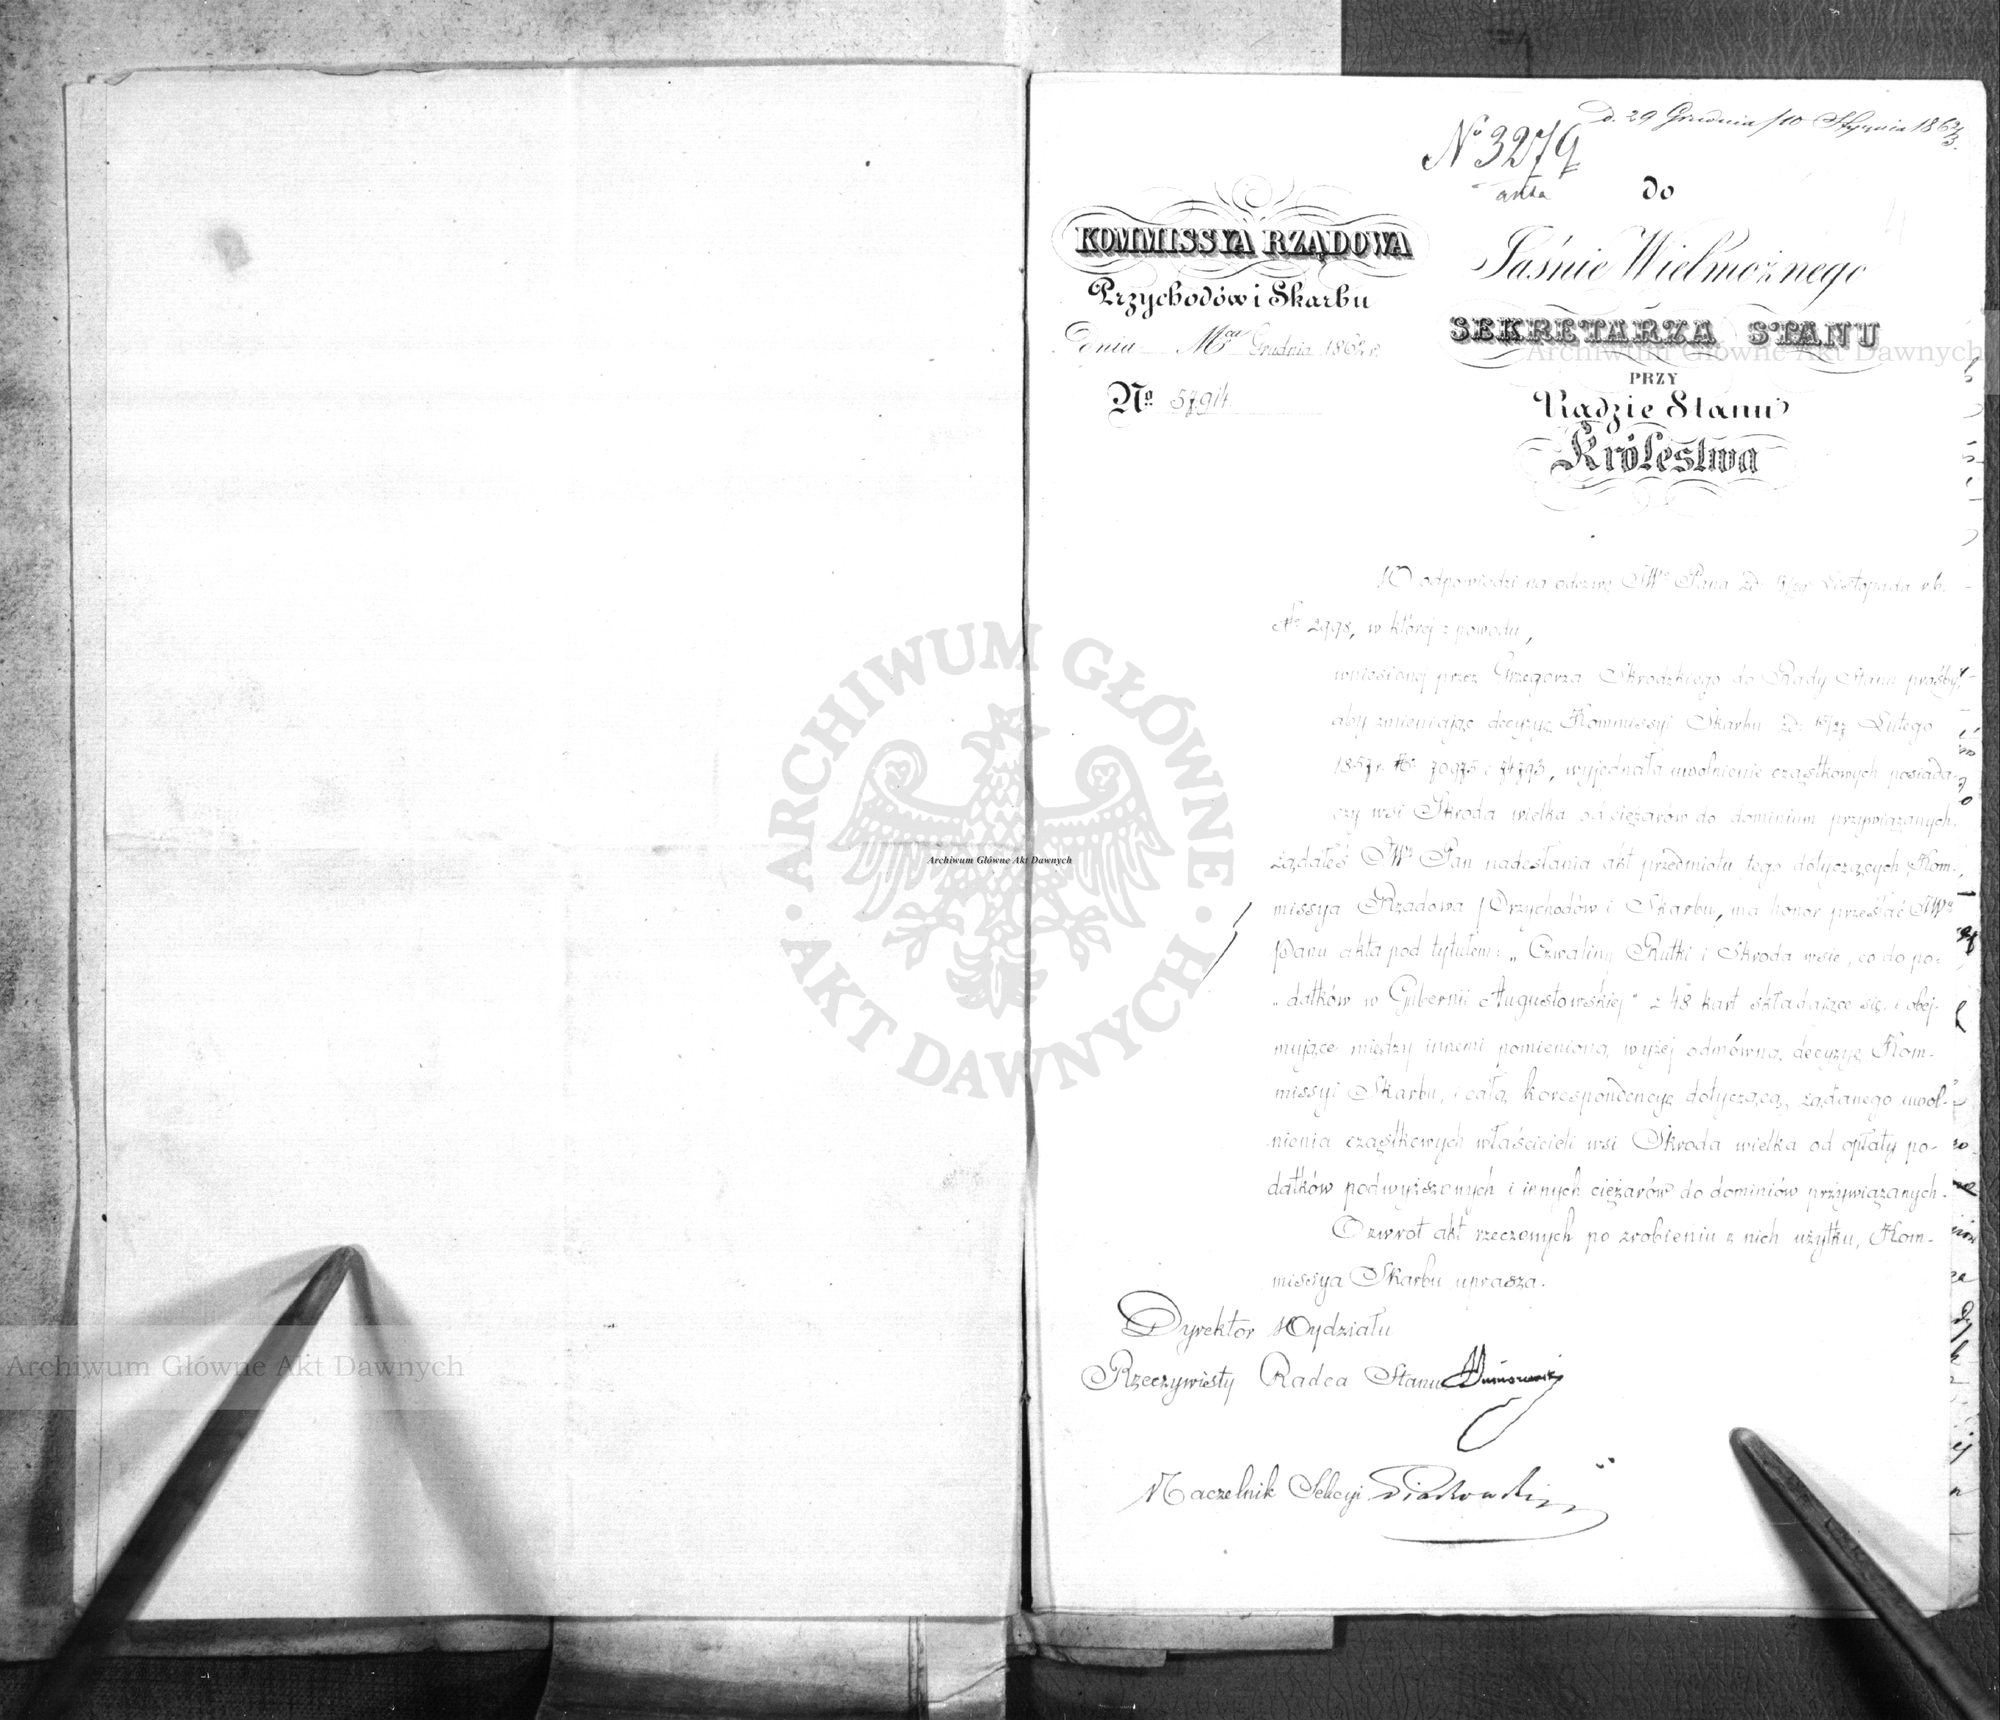 D. 29 Grudnia /10 Stycznia 186 2/3.
No 3279
akta
KOMMISSYA RZĄDOWA
Przychodów i Skarbu
dnia Mca Grudnia 1862 r.
No 57914
do
Jaśnie Wielmożnego
SEKRETARZA STANU
PRZY
Radzie Stanu
Królestwa
W odpowiedzi na odezwę JWo Pana Listopada r.b.
No 2998, w której z powodu,
wniesionej przez Grzegorza Skrodzkiego do Rady Stanu prośby,
aby zmieniając decyzyę Kommissyi Skarbu z d. 15/27 Lutego
1857 r. No 70975 i 74793, wyjednała uwolnienie cząstkowych posiada-
czy wsi Skroda wielka od ciężarów do dominium przywiązanych.
żądałeś JWy Pan nadesłania akt przedmiotu tego dotyczących, Kom-
missya Rządowa Przychodów i Skarbu, ma honor przesłać JWu
Panu akta pod tytułem: „Czwaliny Rutki i Skroda wsie, co do po-
„datków w Gubernii Augustowskiej" z 48 kart składające się, i obej-
mujące między innemi pomienioną wyżej odmówną decyzyę Kom-
missyi Skarbu, i całą korespondencyę dotyczącą żądanego uwol-
nienia cząstkowych właścicieli wsi Skroda wielka od opłaty po-
datków podwyższonych i innych ciężarów do dominiów przywiązanych.
O zwrot akt rzeczonych po zrobieniu z nich użytku, Kom-
missya Skarbu uprasza.
Dyrektor Wydziału
Rzeczywisty Radca Stanu
Naczelnik Sekcyi
ARCHIWUM GŁÓWNE
AKT DAWNYCH
Archiwum Główne Akt Dawnych
Archiwum Główne Akt Dawnych
Archiwum Główne Akt Dawnych